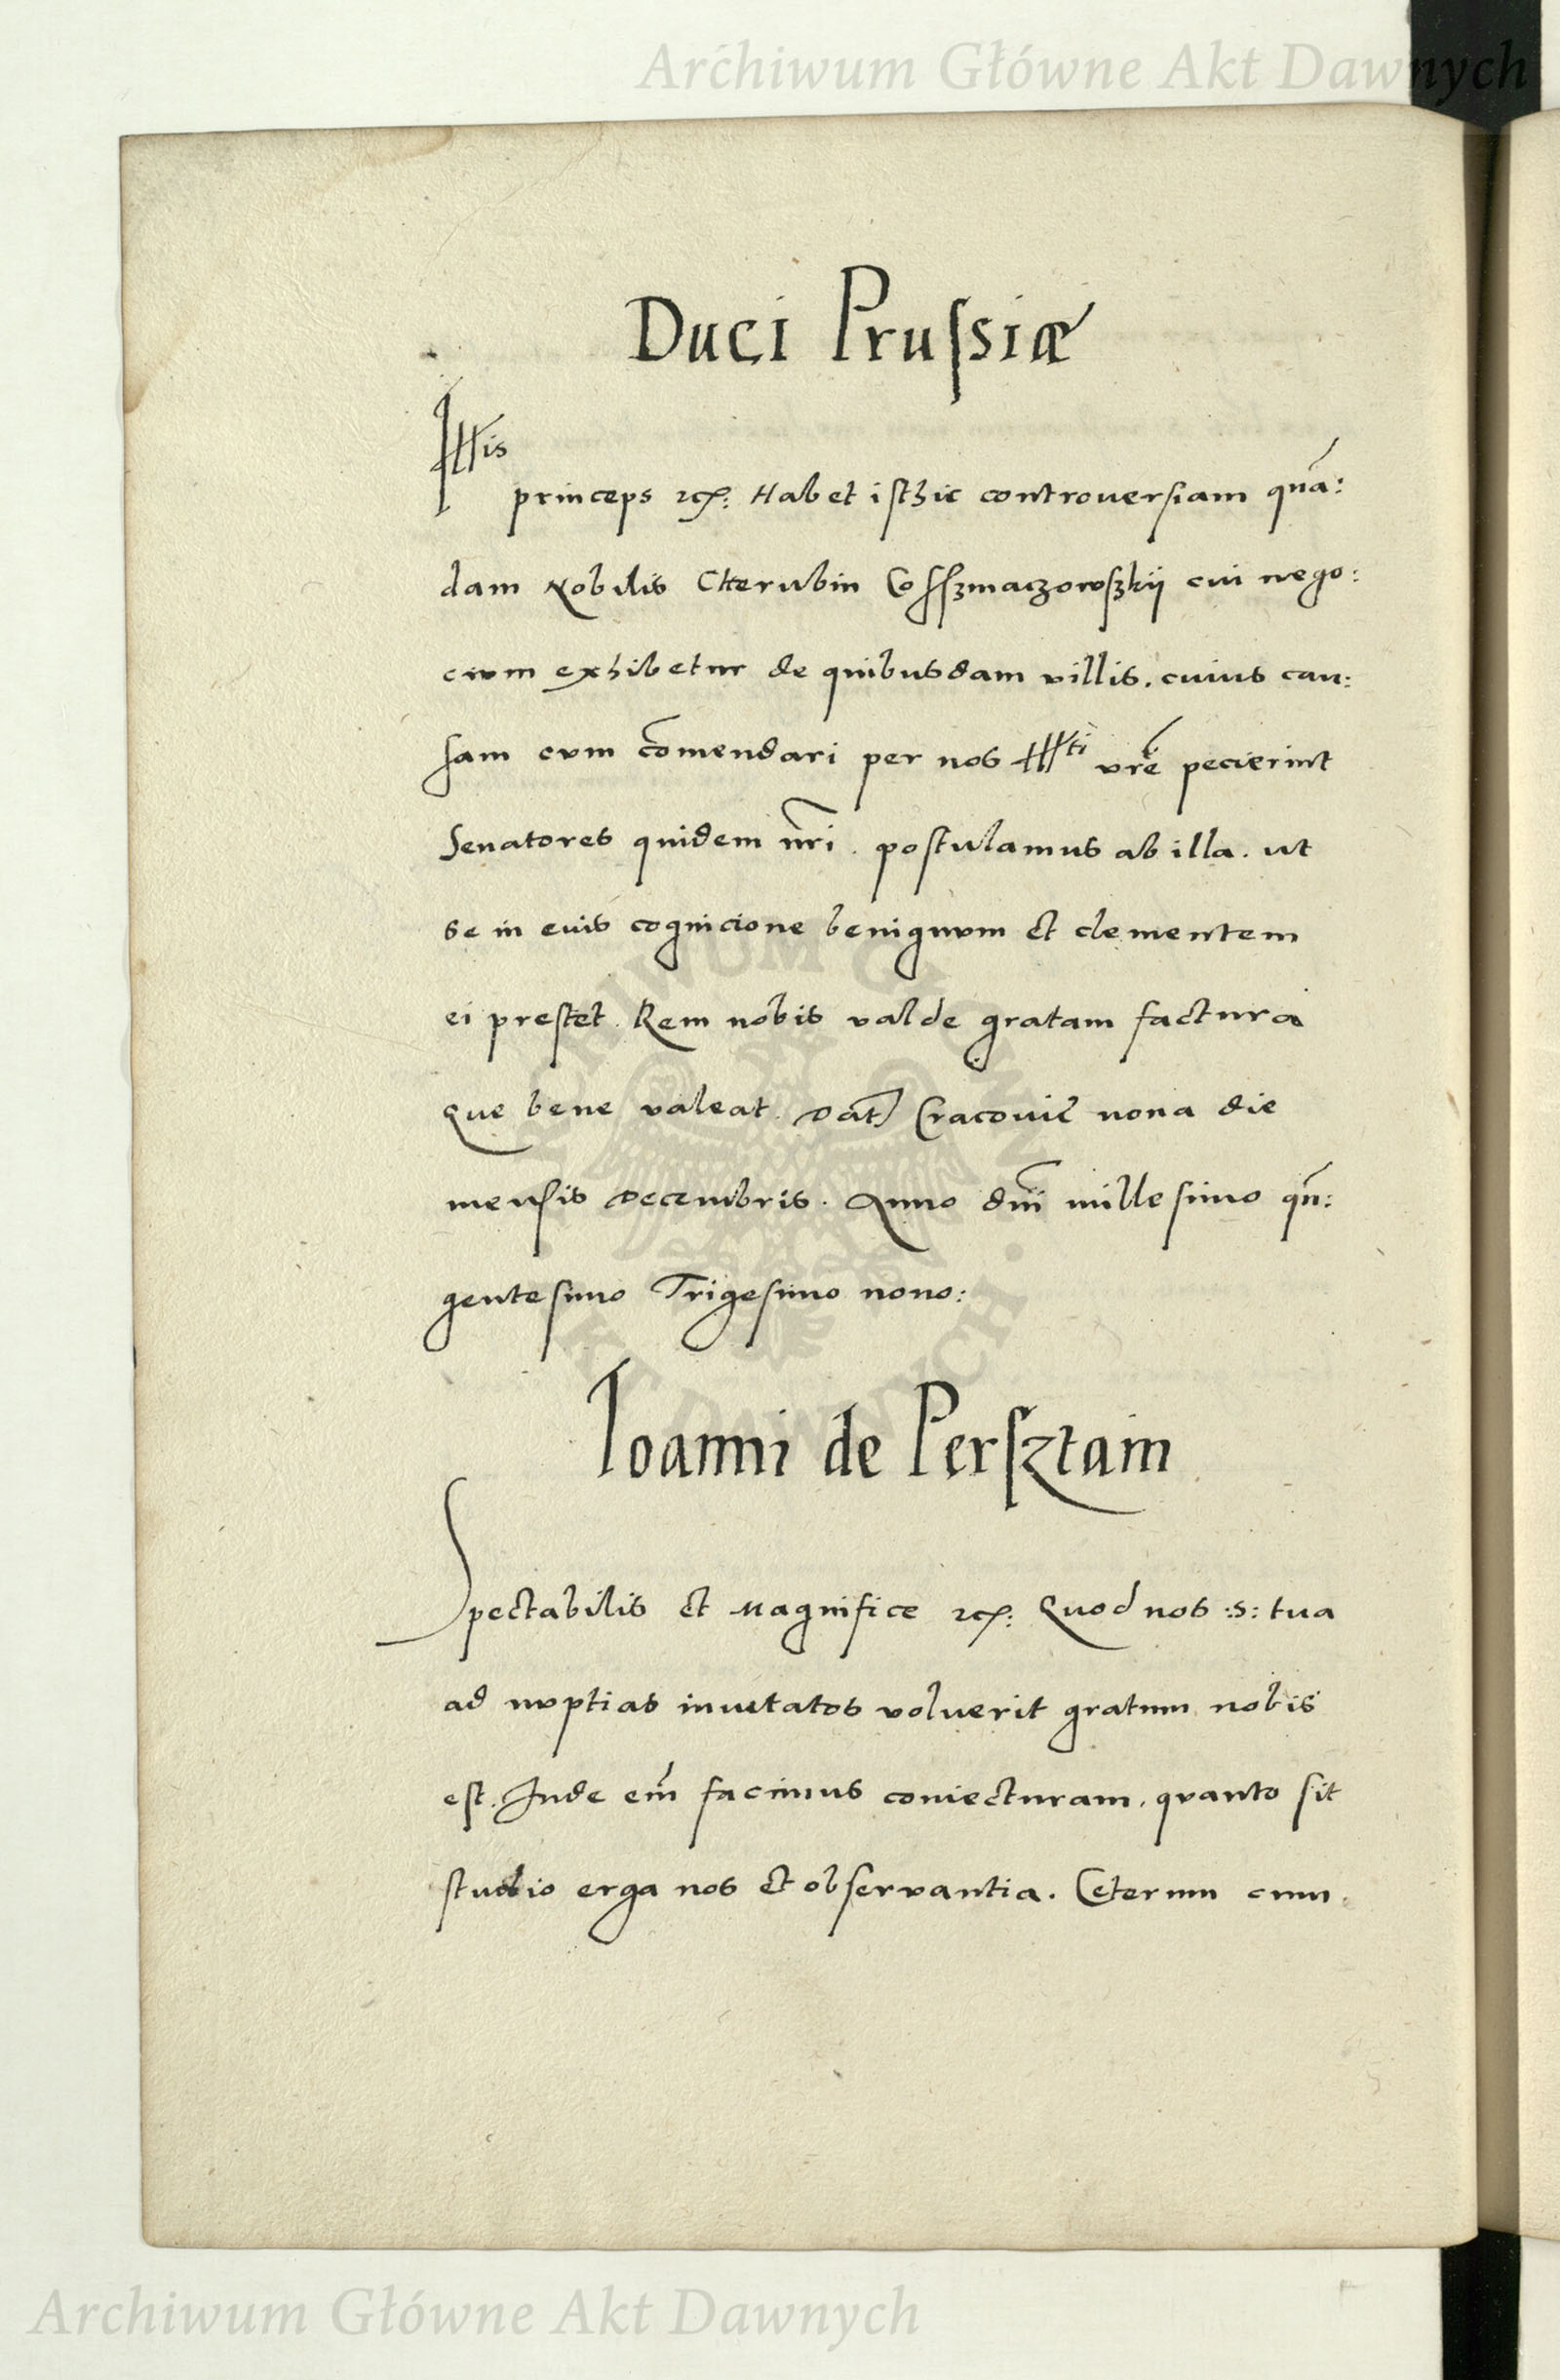 Archiwum Główne Akt Dawnych
Duci Prussiæ
Illis
princeps etc: Habet isthic controversiam quā:
dam Nobilis Cherubin Cosszmaczowszkij cui nego:
cium exhibetur de quibusdam villis. cuius cau:
sam cum cōmendari per nos Illti vrē pecierint
Senatores quidem nr̄i. postulamus ab illa. ut
se in eius cognicione benignum et clementem
ei prestet. Rem nobis valde gratam factura
Que bene valeat. Dat Cracovie nona die
mensis Decembris. Anno dnī millesimo qn̄:
gentesimo Trigesimo nono:
Ioanni de Persztain
Spectabilis et Magnifice etc: Quod nos :S: tua
ad nuptias invitatos voluerit gratum nobis
est. Inde em̄ facimus coniecturam. quanto sit
studio erga nos et observantia. Ceterum cum
ARCHIWUM GŁÓWNE AKT DAWNYCH
Archiwum Główne Akt Dawnych